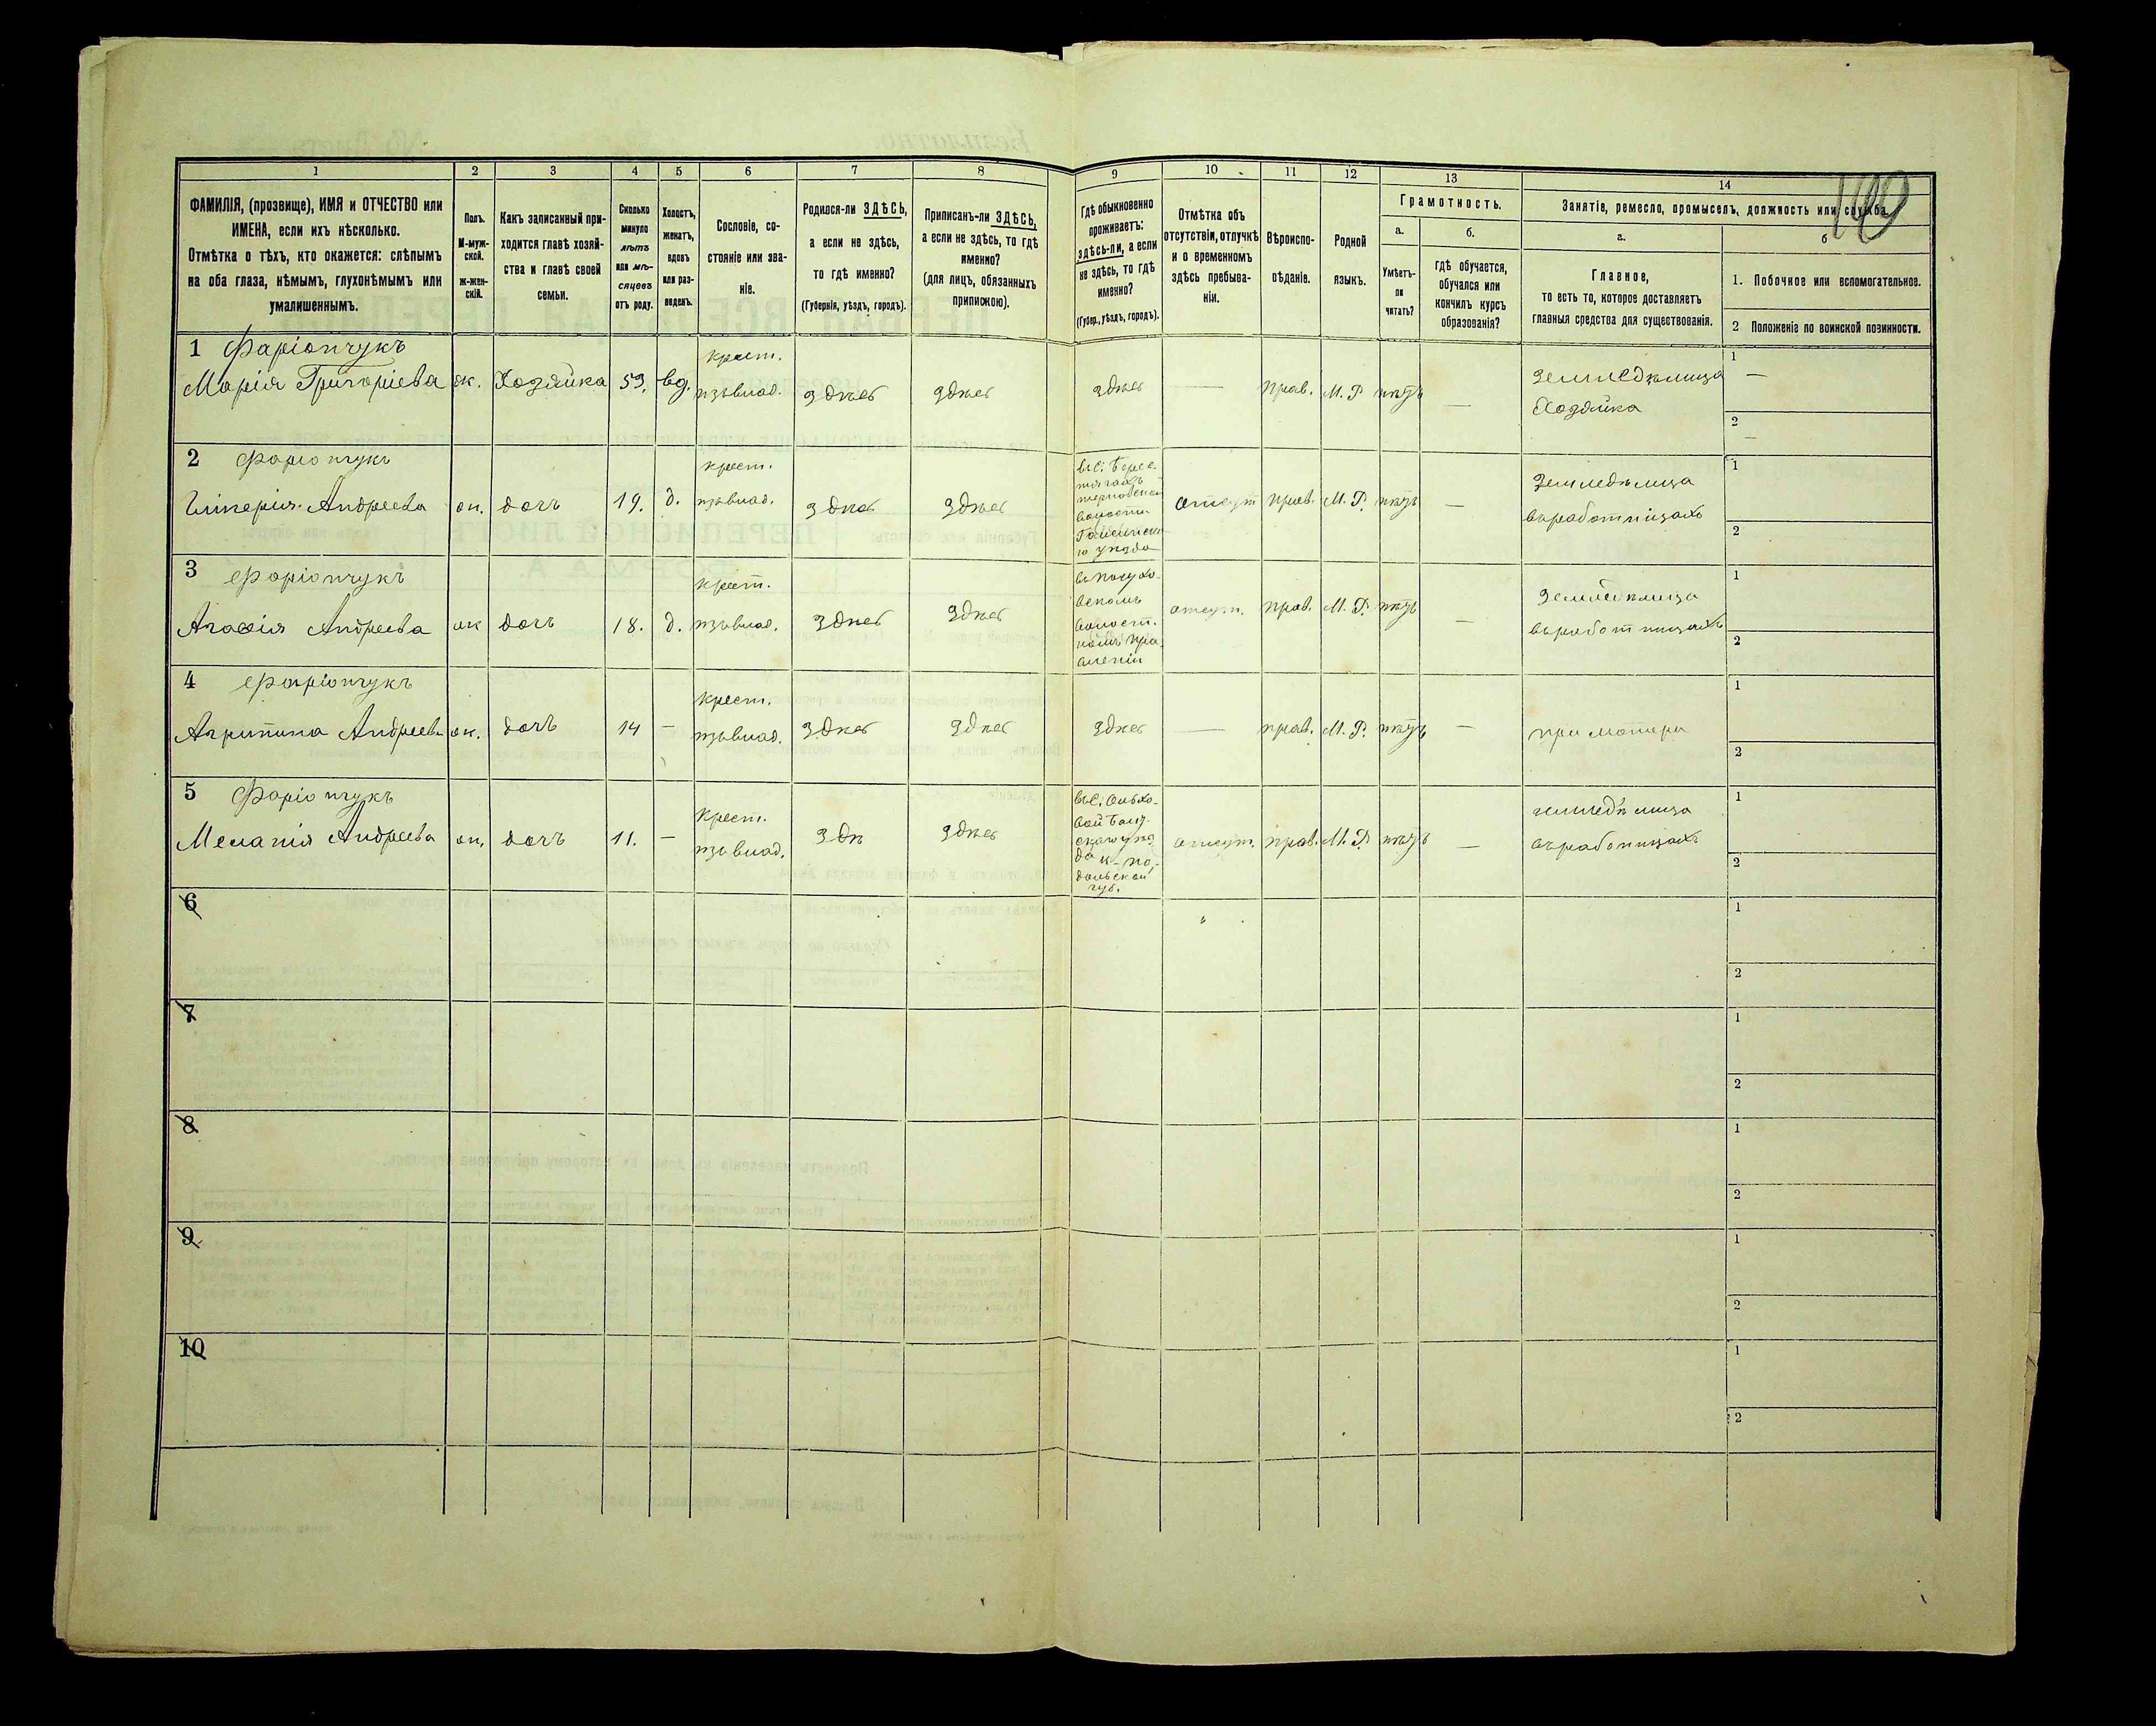 140
1 2 3 4 5 6 7 8 9 10 11 12 13 14
ФАМИЛІЯ, (прозвище), ИМЯ и ОТЧЕСТВО или ИМЕНА, если ихъ нѣсколько.
Отмѣтка о тѣхъ, кто окажется: слѣпымъ на оба глаза, нѣмымъ, глухонѣмымъ или умалишеннымъ.
Полъ.
М-мужской.
ж-женскій.
Какъ записанный приходится главѣ хозяйства и главѣ своей семьи.
Сколько минуло лѣтъ или мѣсяцевъ отъ роду.
Холостъ, женатъ, вдовъ или разведенъ.
Сословіе, состояніе или званіе.
Родился-ли ЗДѢСЬ, а если не здѣсь, то гдѣ именно?
(Губернія, уѣздъ, городъ).
Приписанъ-ли ЗДѢСЬ, а если не здѣсь, то гдѣ именно?
(для лицъ, обязанныхъ припискою).
Гдѣ обыкновенно проживаетъ: здѣсь-ли, а если не здѣсь, то гдѣ именно?
(Губер., уѣздъ, городъ).
Отмѣтка объ отсутствіи, отлучкѣ и о временномъ здѣсь пребываніи.
Вѣроисповѣданіе.
Родной языкъ.
Грамотность.
а.
Умѣетъ-ли читать?
б.
гдѣ обучается, обучался или кончилъ курсъ образованія?
Занятіе, ремесло, промыселъ, должность или служба.
а.
Главное,
то есть то, которое доставляетъ главныя средства для существованія.
б
1. Побочное или вспомогательное.
2 Положеніе по воинской повинности.
1 Фаріончукъ
Марія Григоріева ж. Хозяйка 59. вд. крест. изъ влад. здѣсь здѣсь здѣсь — прав. М. Р. нѣтъ — Земледѣлица Хозяйка
1 —
2 —
2 Фаріончукъ
Гликерія Андреева ж. дочь 19. д. крест. изъ влад. здѣсь здѣсь
въ с.
волости
уѣзда
отсут прав. М. Р. нѣтъ — Земледѣлица
въ работницахъ
1
2
3 Фаріончукъ
Агафія Андреева ж дочь 18. д. крест. изъ влад. здѣсь здѣсь
волост.
номъ Пра
вленіи
отсут. прав. М. Р. нѣтъ — Земледѣлица
въ работницахъ
1
2
4 Фаріончукъ
Агрипина Андреева ж. дочь 14 — крест. изъ влад. здѣсь здѣсь здѣсь — прав. М. Р. нѣтъ — при матери
1
2
5 Фаріончукъ
Меланія Андреева ж. дочь 11. — крест. изъ влад. здѣ здѣсь
въ с. Ольхо-
вой Балт-
скаго уѣз
да К-По-
дольской
губ.
отсут. прав. М. Р. нѣтъ — земледѣлица
въ работницахъ
1
2
6
1
2
7
1
2
8
1
2
9
1
2
10
1
2